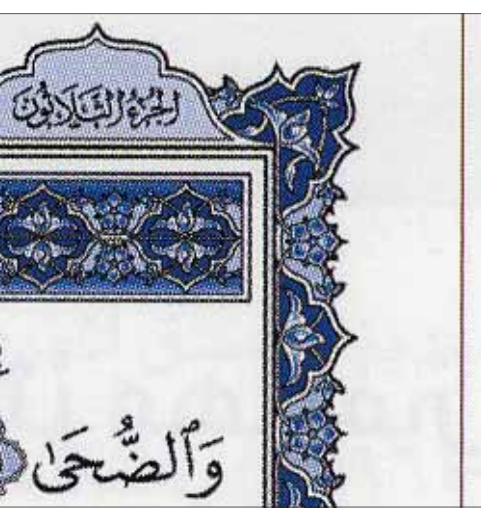 الجزء الثلاثون
وَٱلضُّحَىٰ